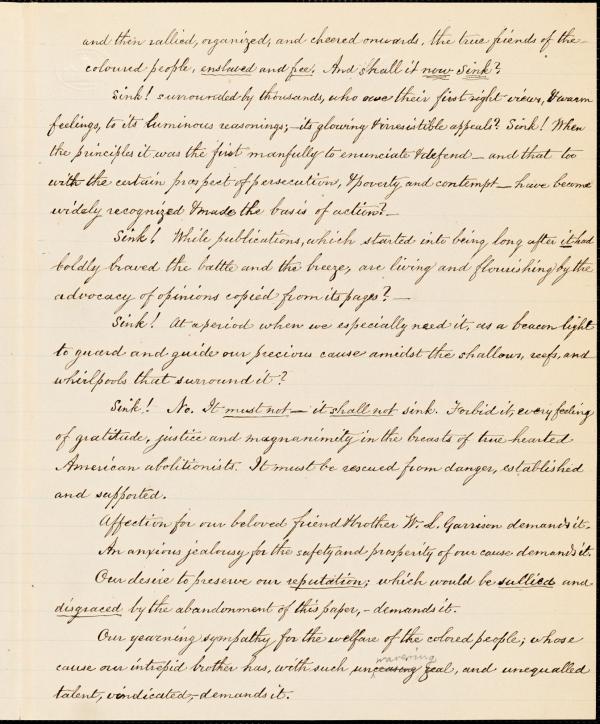 and then rallied, organized, and cheered onwards, the true friends of the
coloured people, enslaved and free. And shall it now sink?
Sink! surrounded by thousands, who owe their first right views, & warm
feelings, to its luminous reasonings; - its glowing & irresistible appeals? Sink! When
the principles it was the first manfully to enunciate & defend — and that too
with the certain prospect of persecution, & poverty and contempt — have become
widely recognized & made the basis of action? —
Sink! While publications, which started into being, long after it had
boldly braved the battle and the breeze, are living and flourishing by the
advocacy of opinions copied from its pages? —
Sink! At a period when we especially need it, as a beacon light
to guard and guide our precious cause amidst the shallows, reefs, and
whirlpools that surround it?
Sink! No. It must not — it shall not sink. Forbid it, every feeling
of gratitude, justice and magnanimity in the breasts of true hearted
American abolitionists. It must be rescued from danger, established
and supported.
Affection for our beloved friend & brother W. L. Garrison demands it.
An anxious jealousy for the safety and prosperity of our cause demands it.
Our desire to preserve our reputation; which would be sullied and
disgraced by the abandonment of this paper, - demands it.
Our yearning sympathy for the welfare of the colored people; whose
wavering
cause our intrepid brother has, with such unceasing zeal, and unequalled
talent, vindicated, - demands it.